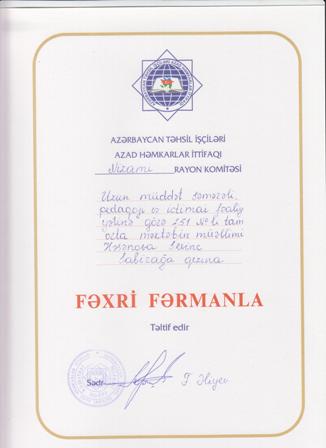 AZƏRBAYCAN TƏHSİL İŞÇİLƏRİ
AZAD HƏMKARLAR İTTİFAQI
Nizami RAYON KOMİTƏSİ
Uzun müddət səmərəli
pedaqoji və ictimai fəaliy
yətinə görə 251 №-li tam
orta məktəbin müəllimi
Həsənova Sevinc
Sabirağa qızına
FƏXRİ FƏRMANLA
Təltif edir
Sədr T Əliyev